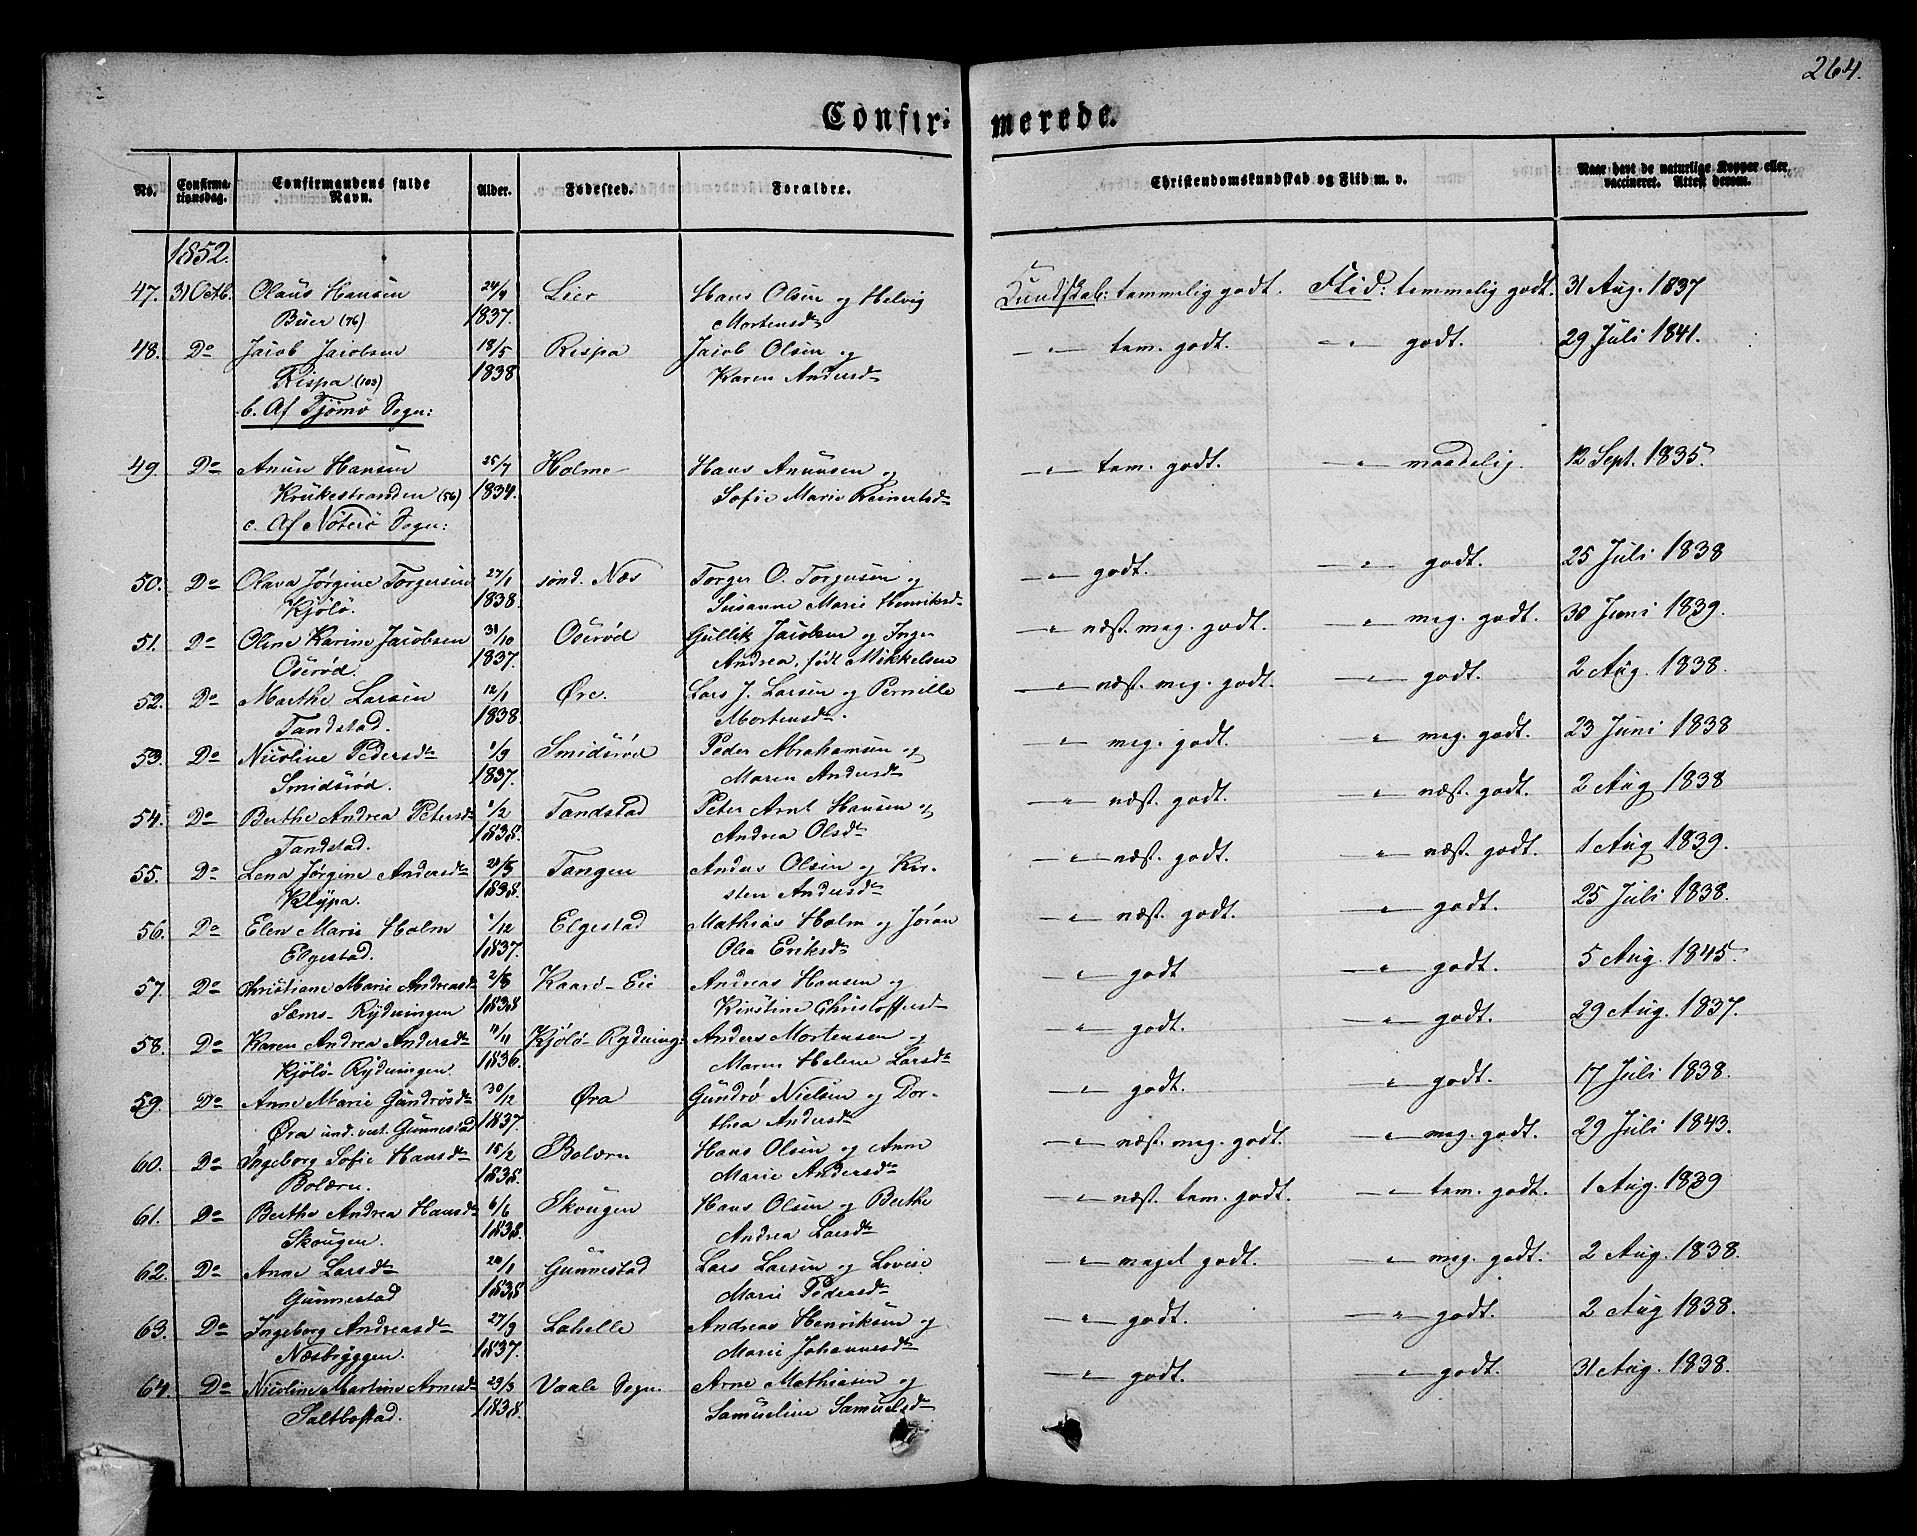 264.
Confir- merede.
No. Confirma- tionsdag. Confirmandens fulde Navn. Alder. Fødested. Forældre. Christendomskundskab og Flid m. v. Naar havt de naturlige Kopper eller vaccineret. Attest derom.
1852.
47. 31 Octb. Olaus Hansen 24/4 Lier Hans Olsen og Helvig Kundskab: temmelig godt. Flid: temmelig godt. 31 Aug. 1837
Buer (76) 1837. Mortensdtr
48. Do Jacob Jacobsen 18/5 Rispa Jacob Olsen og — " — tem. godt. — " — godt. 29 Juli 1841.
Rispa (103) 1838 Karen Andersdtr
b. Af Tjømø Sogn:
49. Do Anun Hansen 25/7 Holme Hans Anunsen og — " — tem. godt. — " — maadelig. 12 Sept. 1835.
Krukestranden (56) 1834. Sofie Marie Reinertsdtr
c. Af Nøterø Sogn:
50. Do Olava Jørgine Torgersen 27/1 sønd. Næs Torger O. Torgersen og — " — godt. — " — godt. 25 Juli 1838
Kjølø. 1838. Susanne Marie Henriksdtr
51. Do Oline Karine Jacobsen 31/10 Oserød Gullik Jacobsen og Inger — " — næst. meg. godt. — " — meg. godt. 30 Juni 1839.
Oserød. 1837. Andrea, født Mikkelsen
52. Do Marthe Larsen 12/1 Øre. Lars J. Larsen og Pernille — " — næst. meg. godt. — " — godt. 2 Aug. 1838.
Tandstad. 1838. Mortensdtr.
53. Do Nicoline Pedersdtr 1/9 Smidsrød Peder Abrahamsen og — " — meg. godt. — " — meg. godt. 23 Juni 1838
Smidsrød. 1837. Maren Andersdtr
54. Do Berthe Andrea Petersdtr 1/2 Tandstad Peter Arnt Hansen og — " — næst. godt. — " — næst. godt. 2 Aug 1838
Tandstad. 1838. Andrea Olsdtr
55. Do Lena Jørgine Andersdtr Tangen Anders Olsen og Kir- — " — næst. godt. — " — næst. godt. 1 Aug 1839.
Klypa. 1838. sten Andersdtr
56. Do Elen Marie Holm 1/12 Elgestad Mathias Holm og Jøran — " — næst. godt. — " — godt. 25 Juli 1838.
Elgestad. 1837. Olea Eriksdtr
57. Do Christiane Marie Andreasdtr Kaarø-Eie Andreas Hansen og — " — godt — " — godt. 5 Aug. 1845.
Sæms-Rydningen 1838 Kirstine Christoffersdtr
58. Do Karen Andrea Andersdtr 11/11 Kjølø-Rydning: Anders Mortensen og — " — godt. — " — godt. 29 Aug. 1837.
Kjølø-Rydningen. 1836. Maren Helene Larsdtr
59. Do Anne Marie Gundrøsdtr 30/12 Øra Gundrø Nielsen og Dor- — " — godt. — " — godt. 17 Juli 1838.
Øra und. vest. Gunnestad 1837. thea Andersdtr
60. Do Ingeborg Sofie Hansdtr 15/2 Bolærn Hans Olsen og Anne — " — næst. meg. godt. — " — meg. godt. 29 Juli 1843.
Bolærn. 1838. Marie Andersdtr
61. Do Berthe Andrea Hansdtr 6/6 Skougen Hans Olsen og Berthe — " — næst. tem. godt. — " — tem. godt. 1 Aug. 1839
Skougen. 1838. Andrea Larsdtr
62. Do Anne Larsdtr Gunnestad Lars Larsen og Lovise — " — meget godt. — " — meg. godt. 2 Aug. 1838.
Gunnestad 1838 Marie Pedersdtr
63. Do Ingeborg Andreasdtr 27/9 Lahelle Andreas Henriksen og — " — godt. — " — godt. 2 Aug 1838.
Næsbryggen. 1837. Marie Johannesdtr
64. Do Nicoline Martine Arnesdtr 29/3 Vaale Sogn. Arne Mathiasen og — " — godt. — " — godt. 31 Aug. 1838.
Saltbostad. 1838. Samueline Samuelsdtr